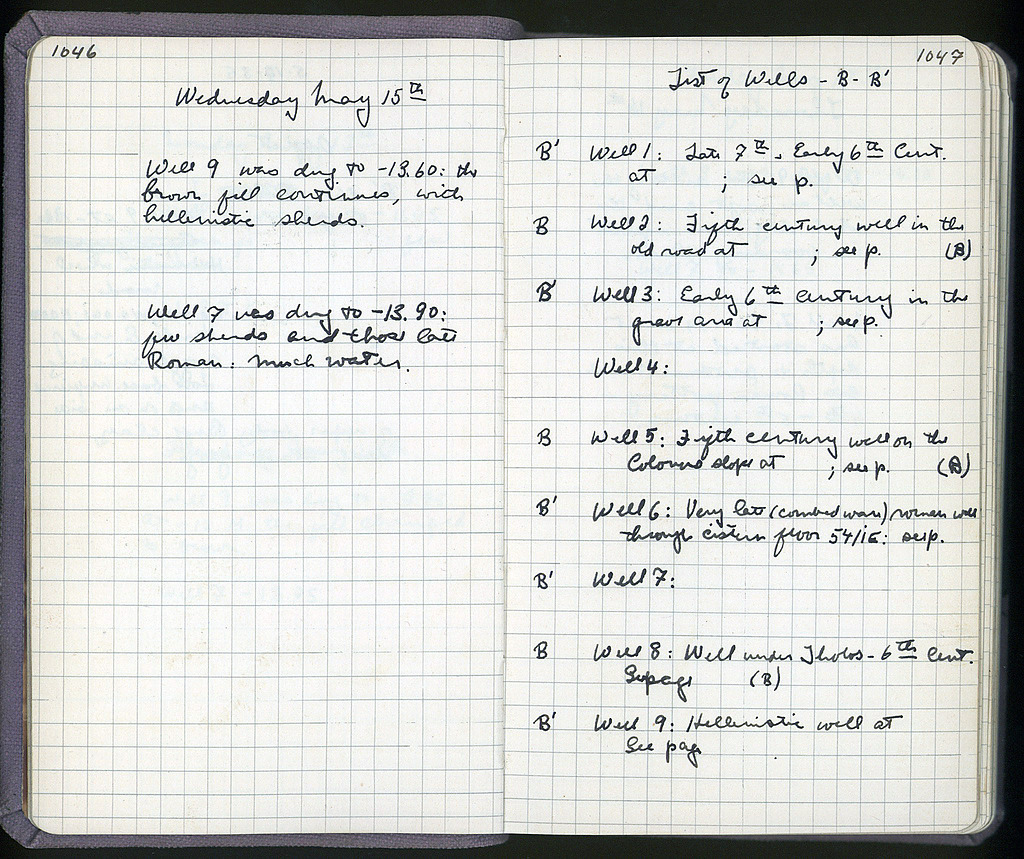 1046
Wednesday May 15th
Well 9 was dug to -13.60: the
brown fill continues, with
hellenistic sherds.
Well 7 was dug to -13.90:
few sherds and those late
Roman: much water.
1047
List of Wells - B - B'
B' Well 1: Late 7th - Early 6th Cent.
at ; see p.
B Well 2: Fifth century well in the
old road at ; see p. (B)
B' Well 3: Early 6th century in the
grave area at ; see p.
Well 4:
B Well 5: Fifth century well on the
Colonus slope at ; see p. (B)
B' Well 6: Very late (combed ware) roman well
through cistern floor 54/ΙΕ: see p.
B' Well 7:
B Well 8: Well under Tholos - 6th Cent.
See page (B)
B' Well 9: Hellenistic well at
See page